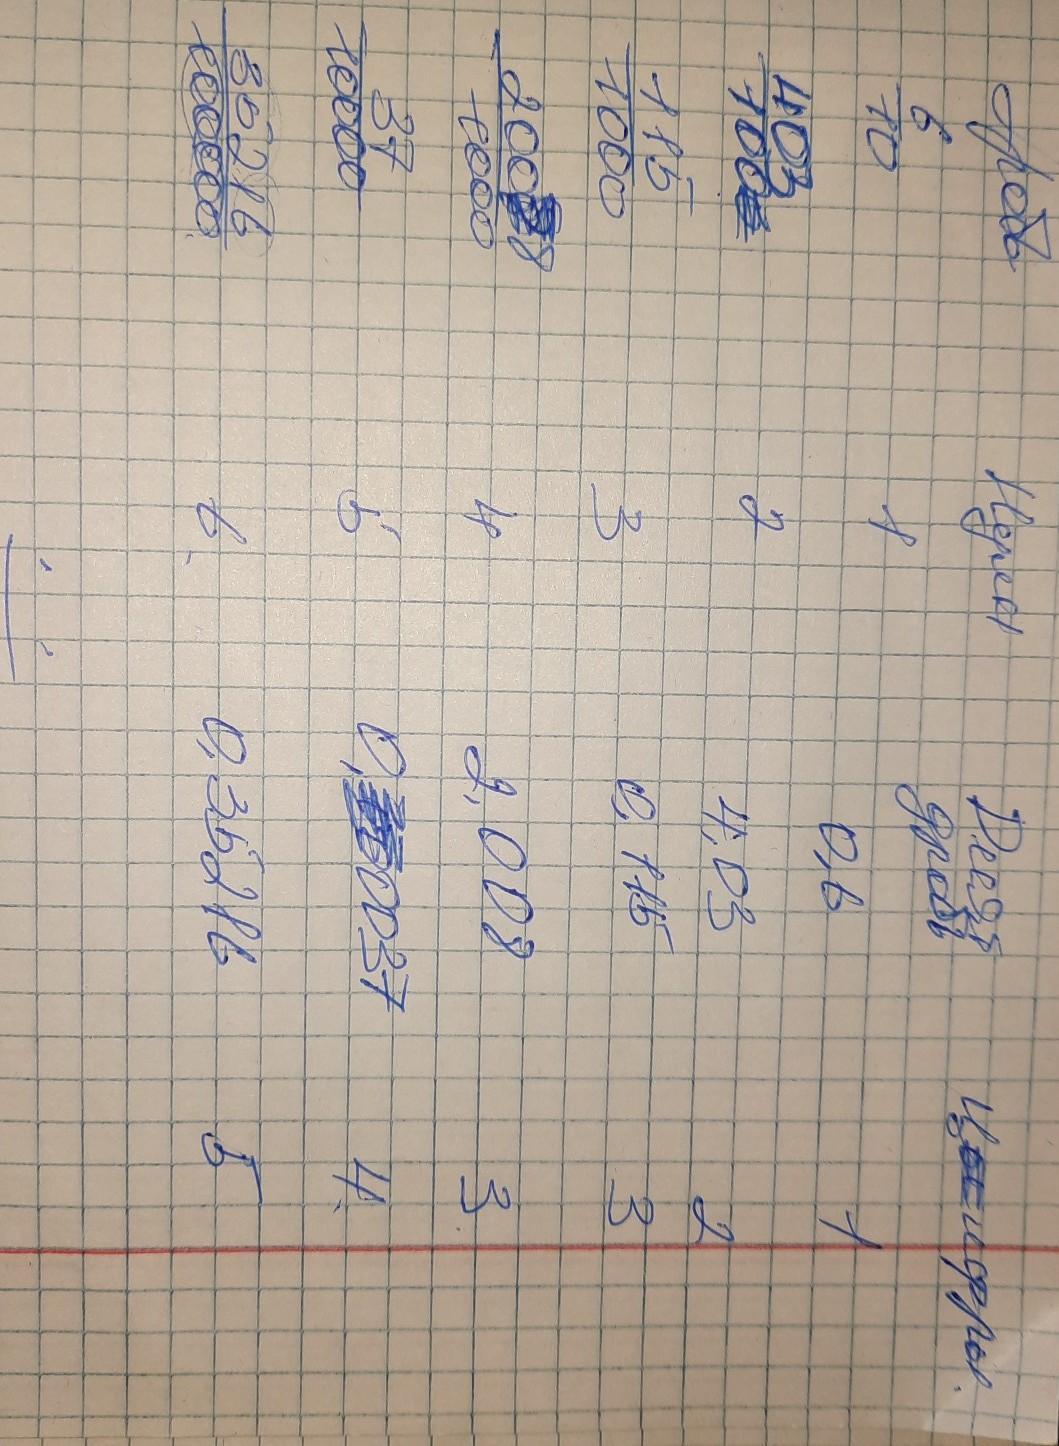 Дробь Нулей Десят Цифры.
дробь
6
10 1 0,6 1
403
100 2 4,03 2
115
1000 3 0,115 3
2008
1000 4 2,008 3
37
10000 5 0,0037 4.
35216
100000 6. 0,35216 5